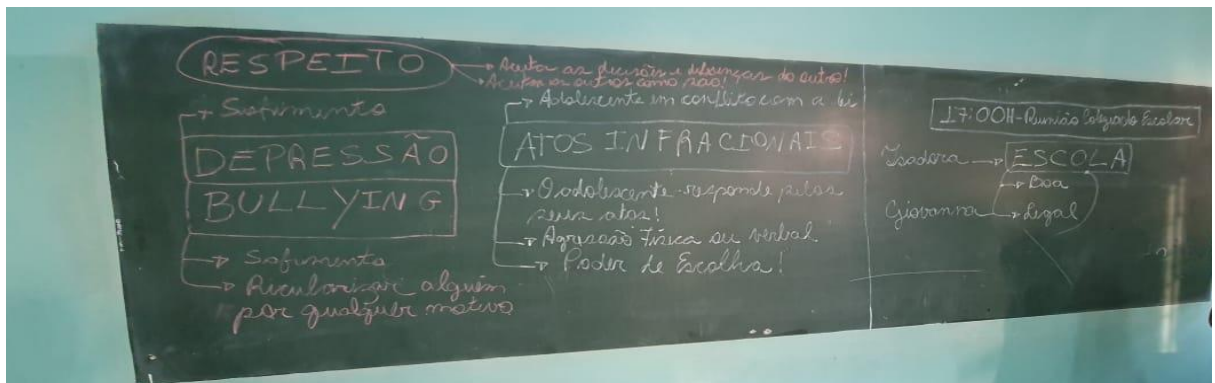 RESPEITO
→ Aceitar as decisões e diferenças do outro!
→ Aceitar os outros como são!
→ Sofrimento
DEPRESSÃO
BULLYING
→ Sofrimento
→ Ridicularizar alguém
por qualquer motivo
→ Adolescente em conflito com a lei
ATOS INFRACIONAIS
→ O adolescente responde pelos
seus atos!
→ Agressão física ou verbal
→ Poder de Escolha!
17:00H - Reunião Colegiado Escolar
Isadora → ESCOLA
→ Boa
Giovanna → Legal